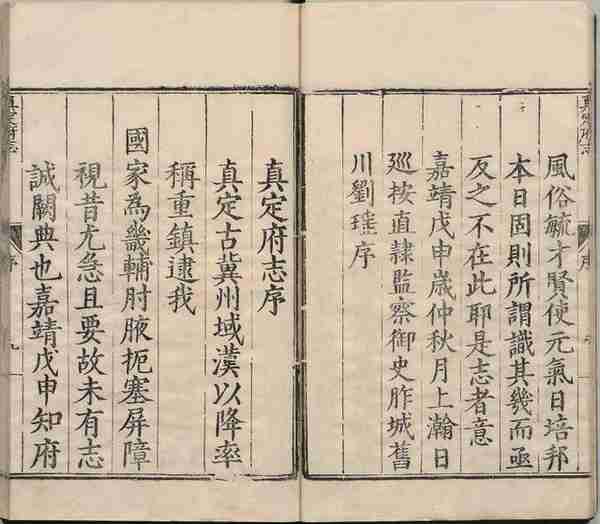 真定府志
序
風俗毓才賢使元氣日培邦
本日固則所謂識其幾而亟
反之不在此耶是志者意
嘉靖戊申歲仲秋月上瀚日
廵按直隷監察御史胙城舊
川劉瑤序
真定府志序
真定古冀州域漢以降率
稱重鎮逮我
國家為畿輔肘腋扼塞屏障
視昔尤急且要故未有志
誠闕典也嘉靖戊申知府
真定府志
序
九